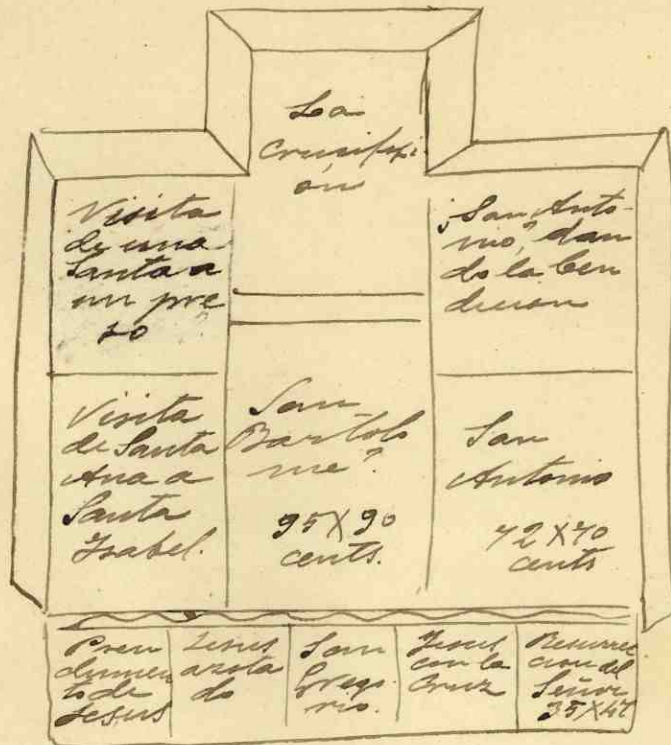 La
Crucifixi
ón
Visita
de una
Santa a
un pre
so
¿San Anto-
nio? dan
do la ben
dicion
Visita
de Santa
Ana a
Santa
Ysabel.
San
Bartolo
mé?
95X90
cents.
San
Antonio
72X70
cents
Pren
dimien
to de
Jesus
Jesus
azota
do
San
Grego
rio.
Jesus
con la
Cruz
Resurrec
cion del
Señor